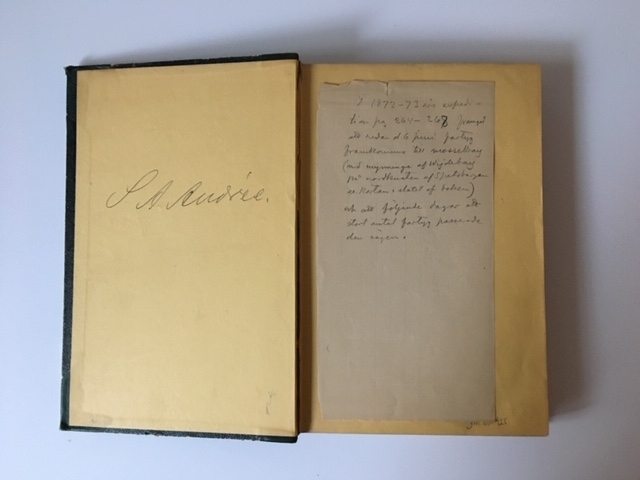 S A Andrée.
I 1872-73 års expedi-
tion pg 264-268 framgår
att redan d 6 juni fartyg
framkommo till mosselbay
(vid mynningen af Wijdebay
på nordkusten af Spetsbergen
se kartan i slutet af boken)
och att följande dagar ett
stort antal fartyg passerade
den vägen.